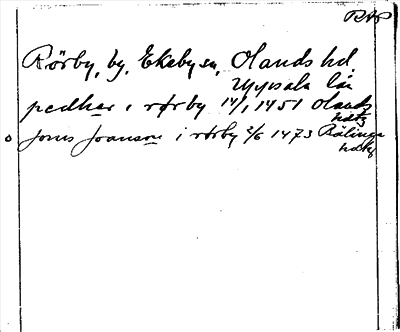 RAP
Rörby, by, Ekeby sn, Olands hd,
Uppsala län
pedhar i rørby 14/1 1451 Olands
hdkf
o Jons Joansson i rörby 2/6 1473 Rälinge
hdkf